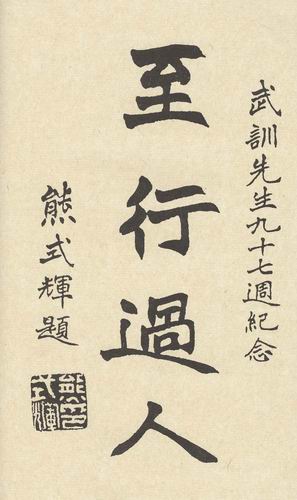 武訓先生九十七週紀念
至行過人
熊式輝題
熊式輝印